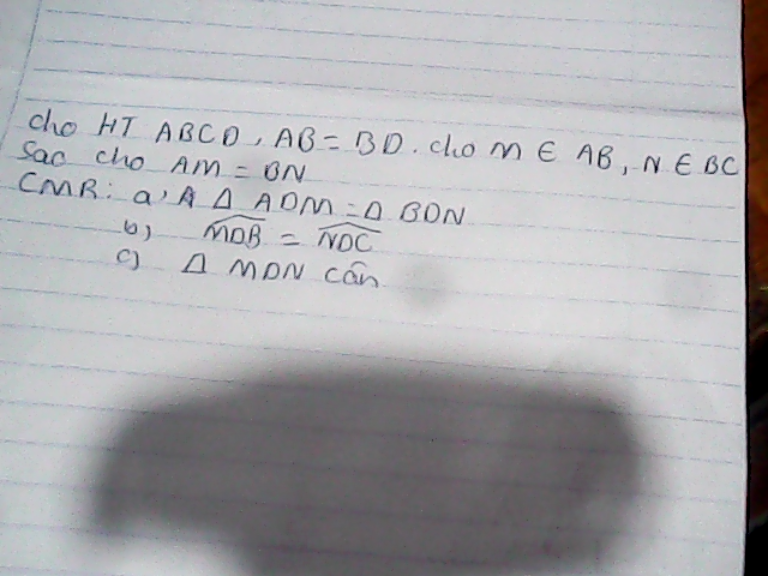 cho HT ABCD, AB = BD. cho M ∈ AB, N ∈ BC
sao cho AM = BN
CMR: a, Δ ADM = Δ BDN
b) \widehat{MDB} = \widehat{NDC}
c) Δ MDN cân